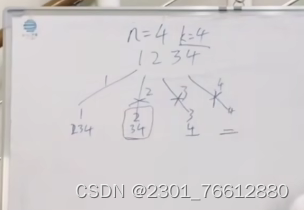 n=4 k=4
1 2 3 4
1 2 3 4
1 2 3
234 34 4
CSDN @2301_76612880